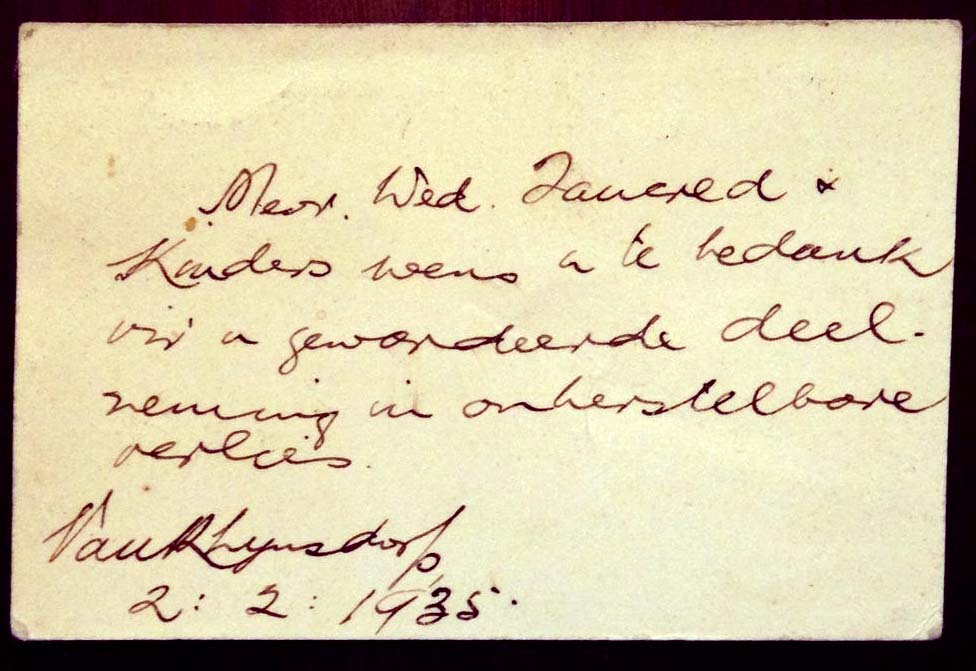 Mevr. Wed. Tancred &
Kinders wens u te bedank
vir u gewardeerde deel-
neming in onherstelbare
verlies.
VanRhynsdorp
2 : 2 : 1935.